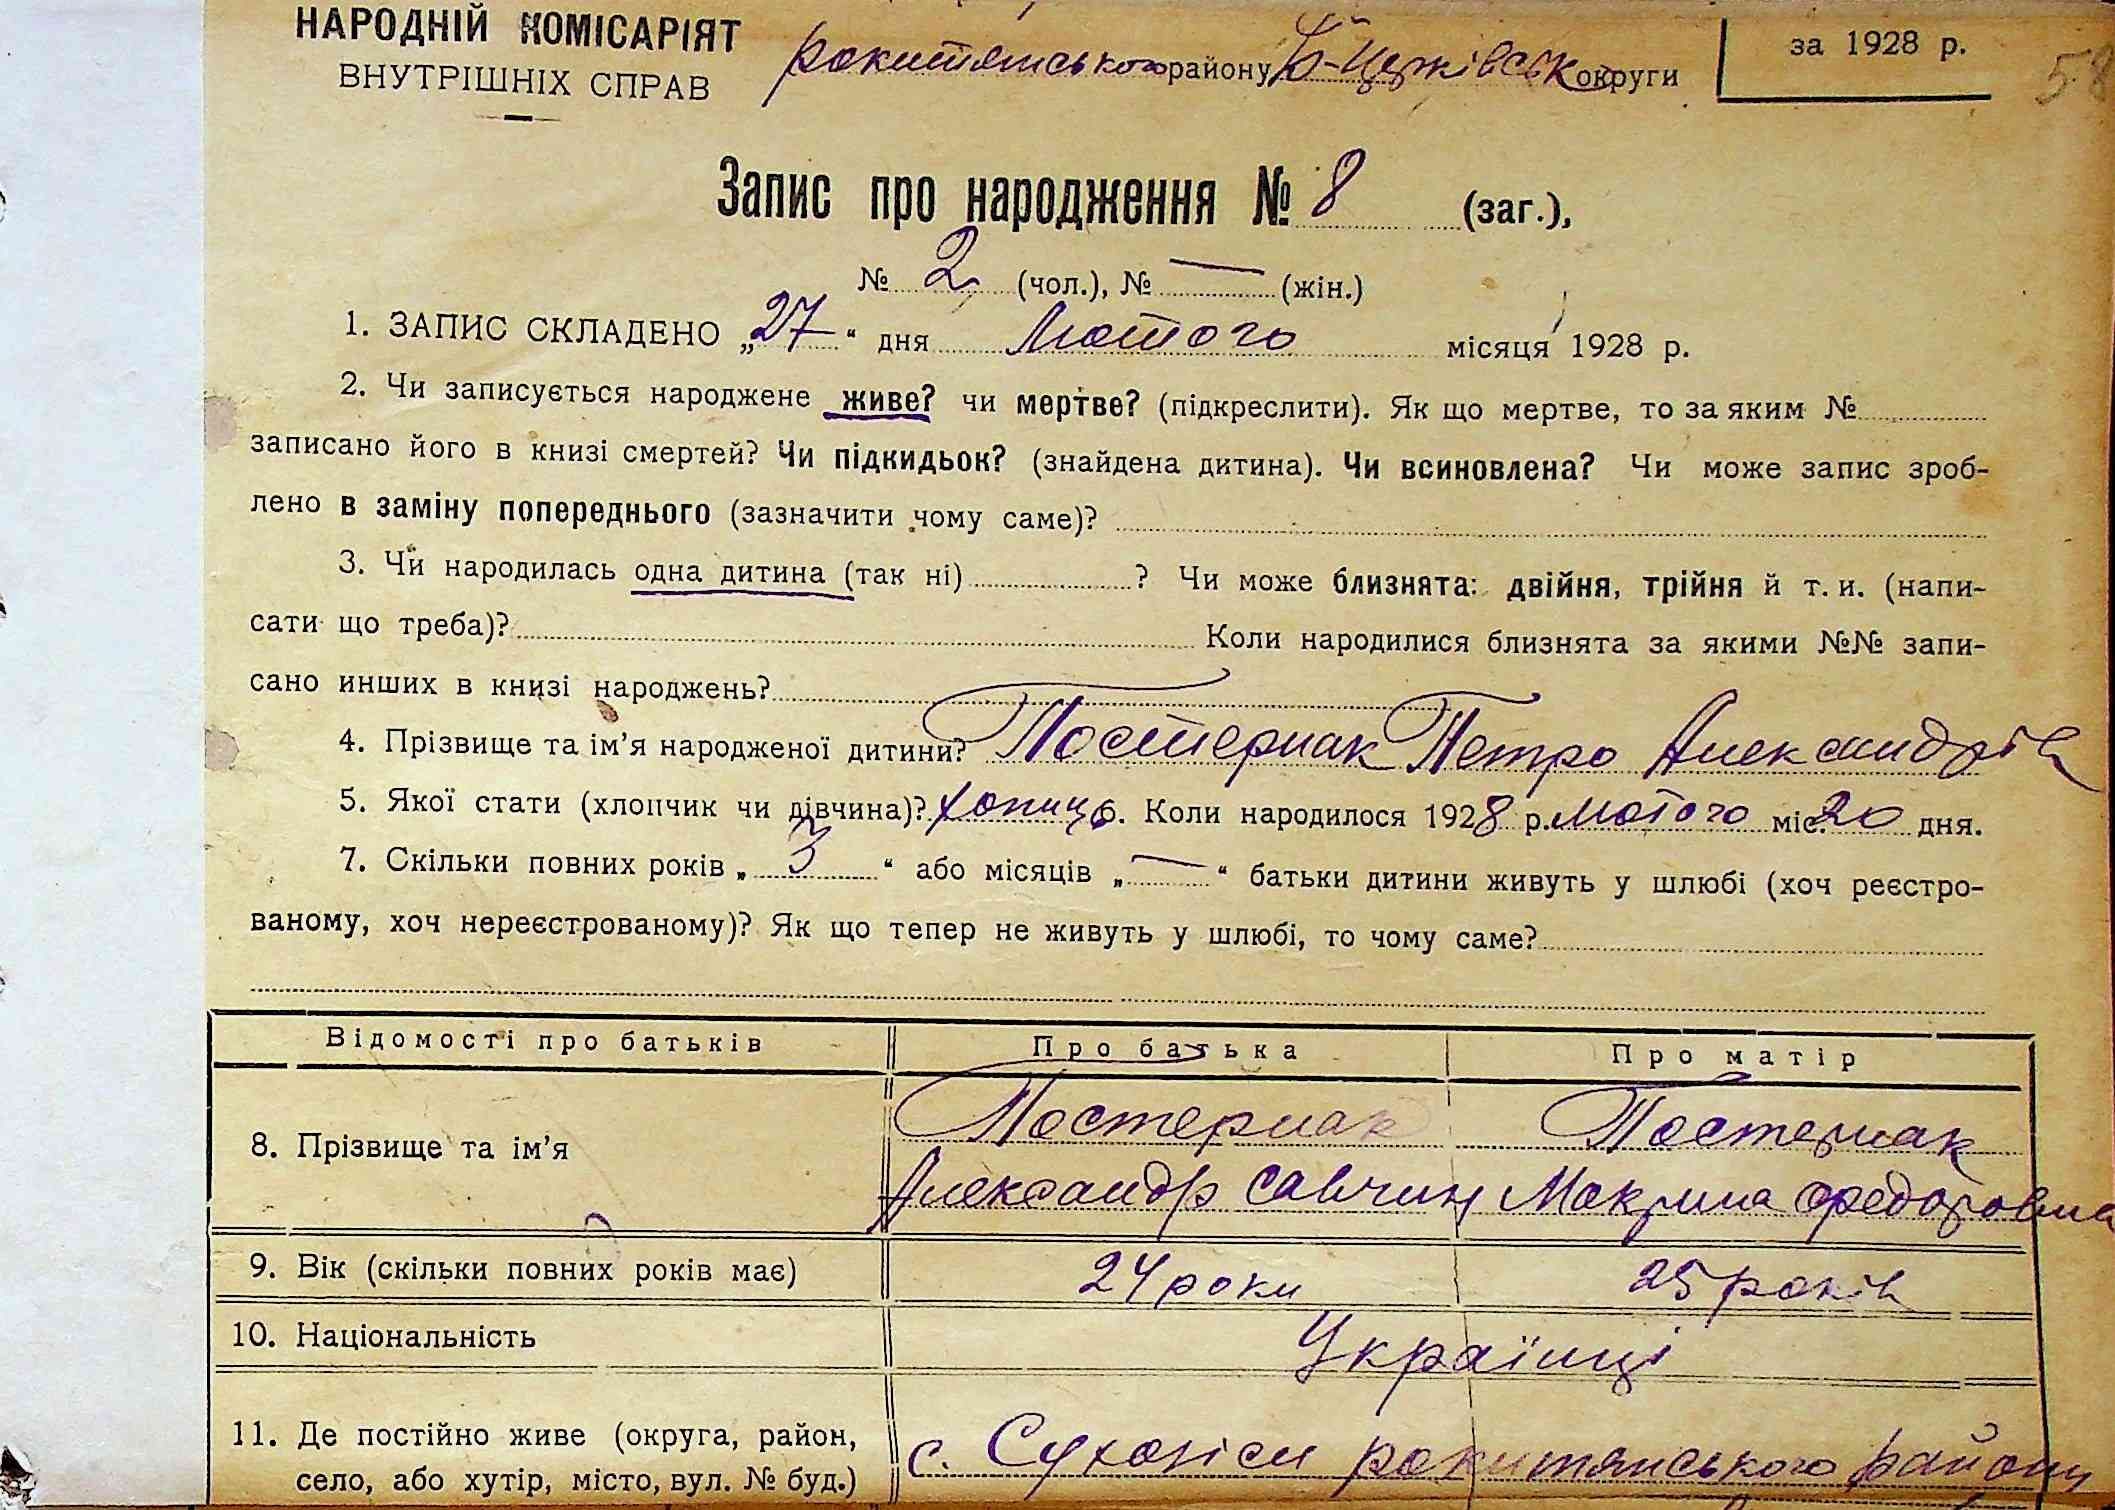 НАРОДНІЙ КОМІСАРІЯТ
ВНУТРІШНІХ СПРАВ
рокитянського району Б-Церківськ округи
за 1928 р.
58
Запис про народження № 8 (заг.),
№ 2 (чол.), № — (жін.)
1. ЗАПИС СКЛАДЕНО „27“ дня Лютого місяця 1928 р.
2. Чи записується народжене живе? чи мертве? (підкреслити). Як що мертве, то за яким №
записано його в книзі смертей? Чи підкидьок? (знайдена дитина). Чи всиновлена? Чи може запис зроб-
лено в заміну попереднього (зазначити чому саме)?
3. Чи народилась одна дитина (так ні) ? Чи може близнята: двійня, трійня й т. и. (напи-
сати що треба)? Коли народилися близнята за якими №№ запи-
сано инших в книзі народжень?
4. Прізвище та ім’я народженої дитини? Постернак Петро Александрів
5. Якої стати (хлопчик чи дівчина)? хопиць 6. Коли народилося 1928 р. лютого міс. 20 дня.
7. Скільки повних років „3“ або місяців „—“ батьки дитини живуть у шлюбі (хоч реєстро-
ваному, хоч нереєстрованому)? Як що тепер не живуть у шлюбі, то чому саме?
Відомості про батьків Про батька Про матір
8. Прізвище та ім’я Постернак Постернак
Александр Савчин Мокрина Федоровна
9. Вік (скільки повних років має) 24 роки 25 років
10. Національність Українці
11. Де постійно живе (округа, район,
село, або хутір, місто, вул. № буд.) с. Сухоліси рокитянського району